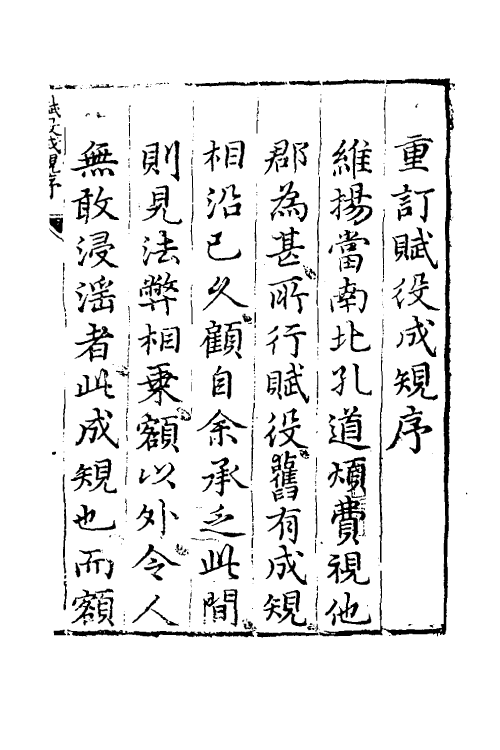 重訂賦役成規序
維揚當南北孔道煩費視他
郡為甚所行賦役舊有成規
相沿已久顧自余承乏此間
則見法弊相乗額以外令人
無敢浸淫者此成規也而額
賦役成規序